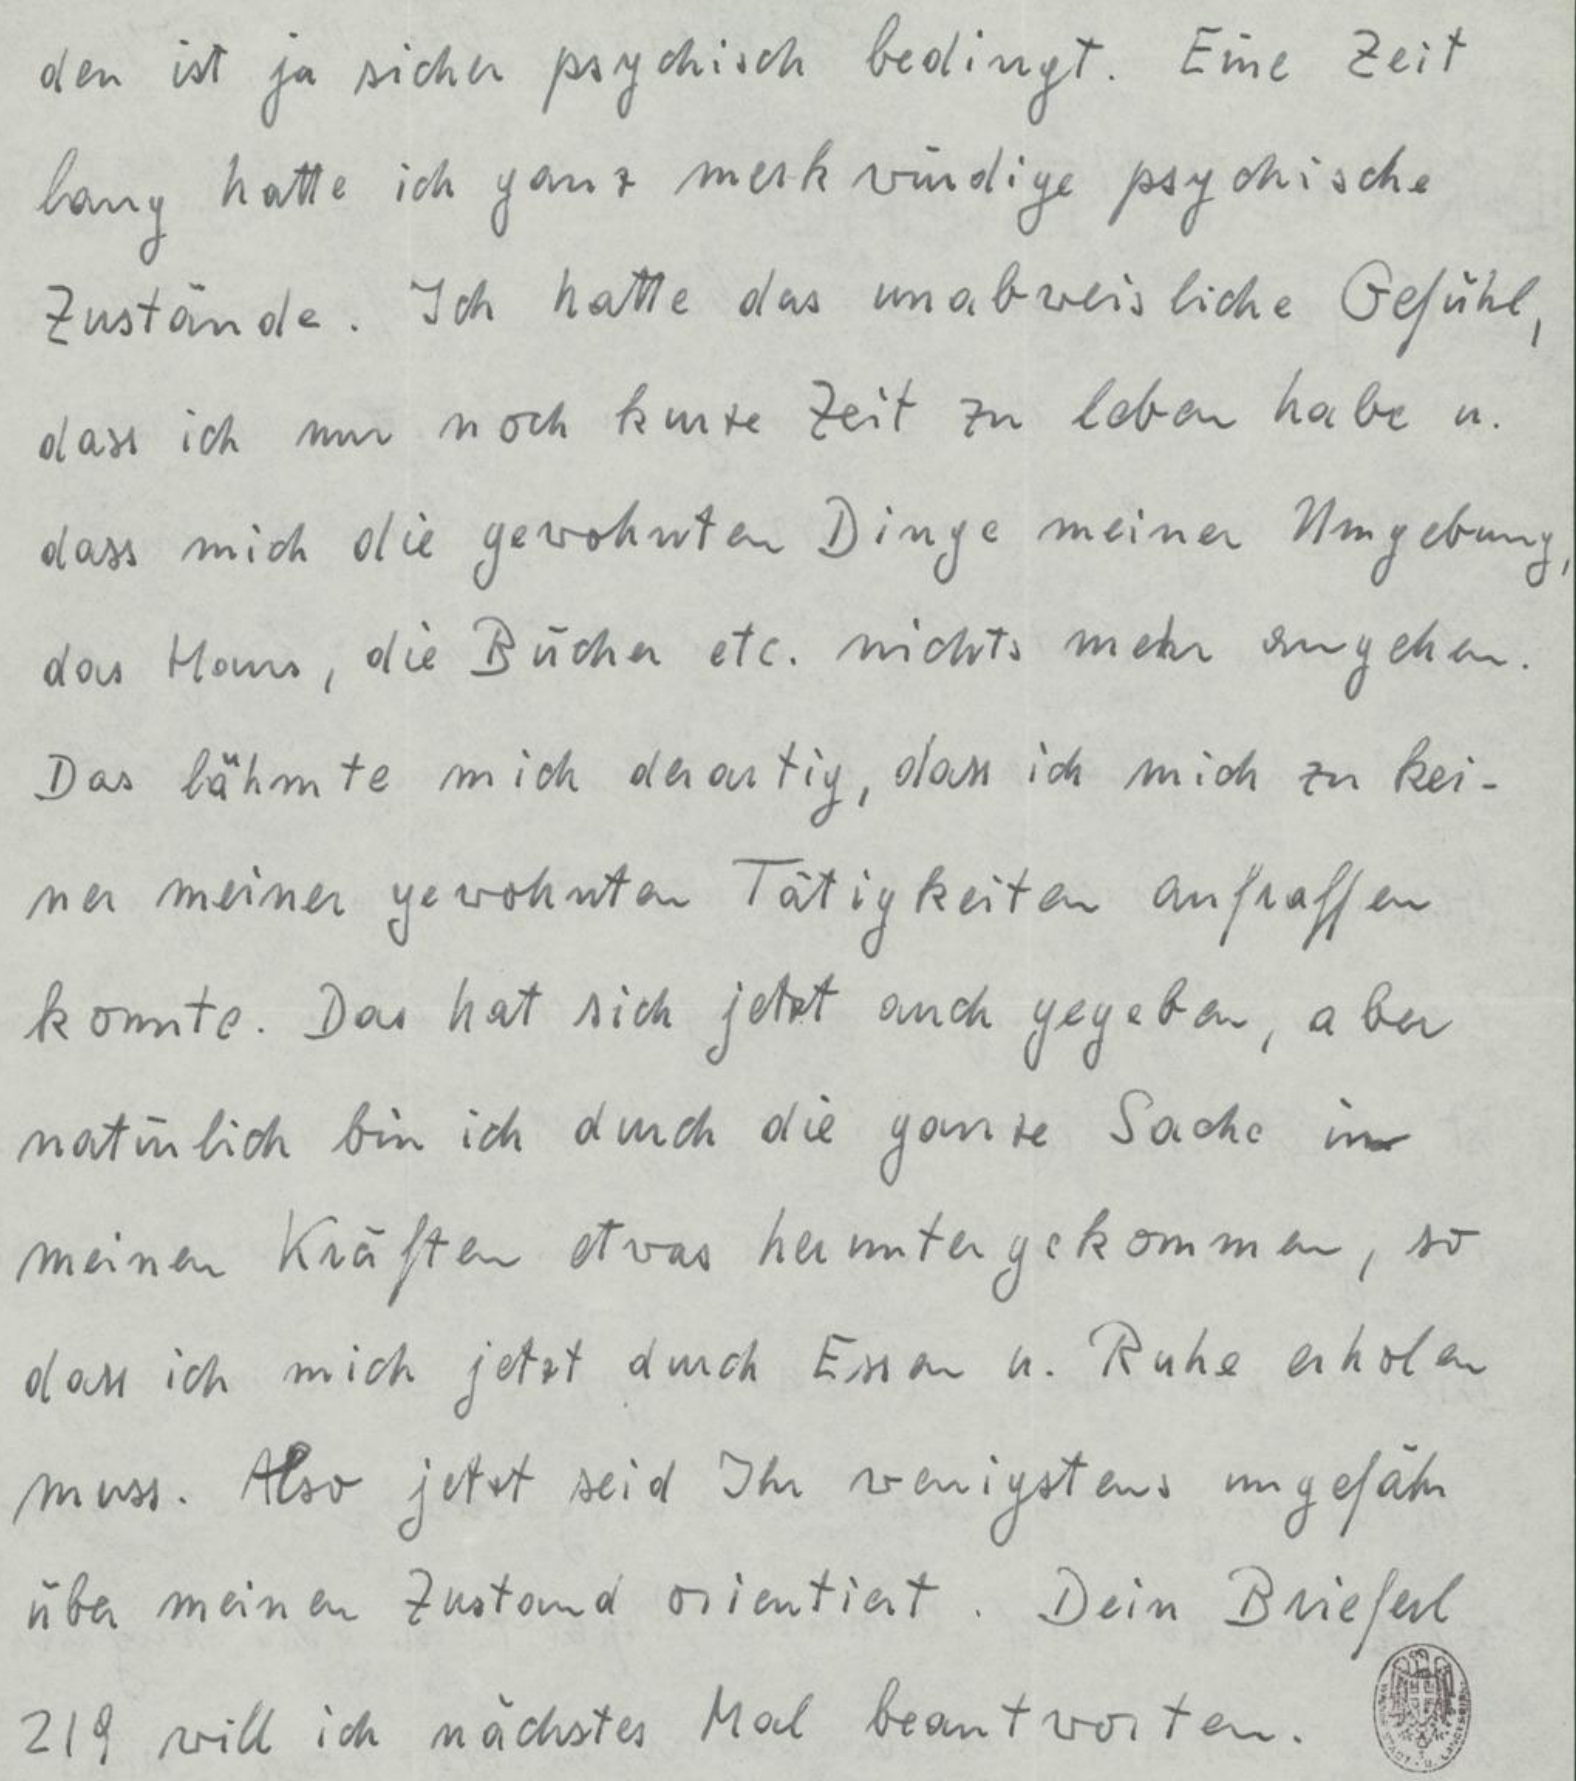 den ist ja sicher psychisch bedingt. Eine Zeit
lang hatte ich ganz merkwürdige psychische
Zustände. Ich hatte das unabweisliche Gefühl,
dass ich nur noch kurze Zeit zu leben habe u.
dass mich die gewohnten Dinge meiner Umgebung,
das Haus, die Bücher etc. nichts mehr angehen.
Das lähmte mich derartig, dass ich mich zu kei-
ner meiner gewohnten Tätigkeiten aufraffen
konnte. Das hat sich jetzt auch gegeben, aber
natürlich bin ich durch die ganze Sache in
meinen Kräften etwas heruntergekommen, so
dass ich mich jetzt durch Essen u. Ruhe erholen
muss. Also jetzt seid Ihr wenigstens ungefähr
über meinen Zustand orientiert. Dein Brieferl
219 will ich nächstes Mal beantworten.